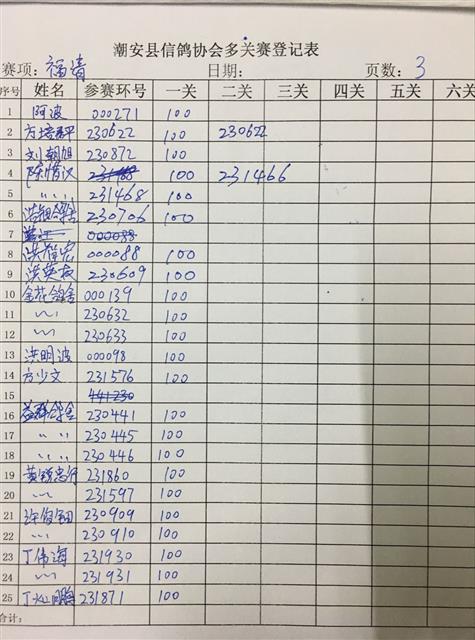 潮安县信鸽协会多关赛登记表
赛项：福清 日期： 页数：3
序号 姓名 参赛环号 一关 二关 三关 四关 五关 六关
1 阿波 000271 100
2 方培平 230622 100 230622
3 刘朝旭 230872 100
4 陈惜汉 100 231466
5 〃 〃 231468 100
6 230706 100
7 000088
8 洪智宏 000088 100
9 洪英 230609 100
10 金花鸽舍 000139 100
11 〃 230632 100
12 〃 230633 100
13 洪明波 000098 100
14 方少文 231576 100
15 441230
16 益群鸽舍 230441 100
17 〃 〃 230445 100
18 〃 〃 230446 100
19 黄 忠行 231860 100
20 〃 231597 100
21 许 230909 100
22 〃 230910 100
23 丁伟海 231930 100
24 〃 231931 100
25 丁 鹏 231871 100
合计：